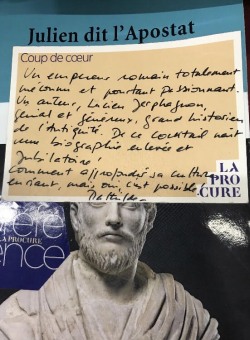 Julien dit l'Apostat
Coup de cœur
Un empereur romain totalement
méconnu et pourtant passionnant.
Un auteur, Lucien Jerphagnon,
génial et généreux, grand historien
de l'Antiquité. De ce cocktail naît
une biographie enlevée et
jubilatoire!
Comment approfondir sa culture
en riant, mais oui, c'est possible!
LA
PRO
CURE
LA PROCURE
ence